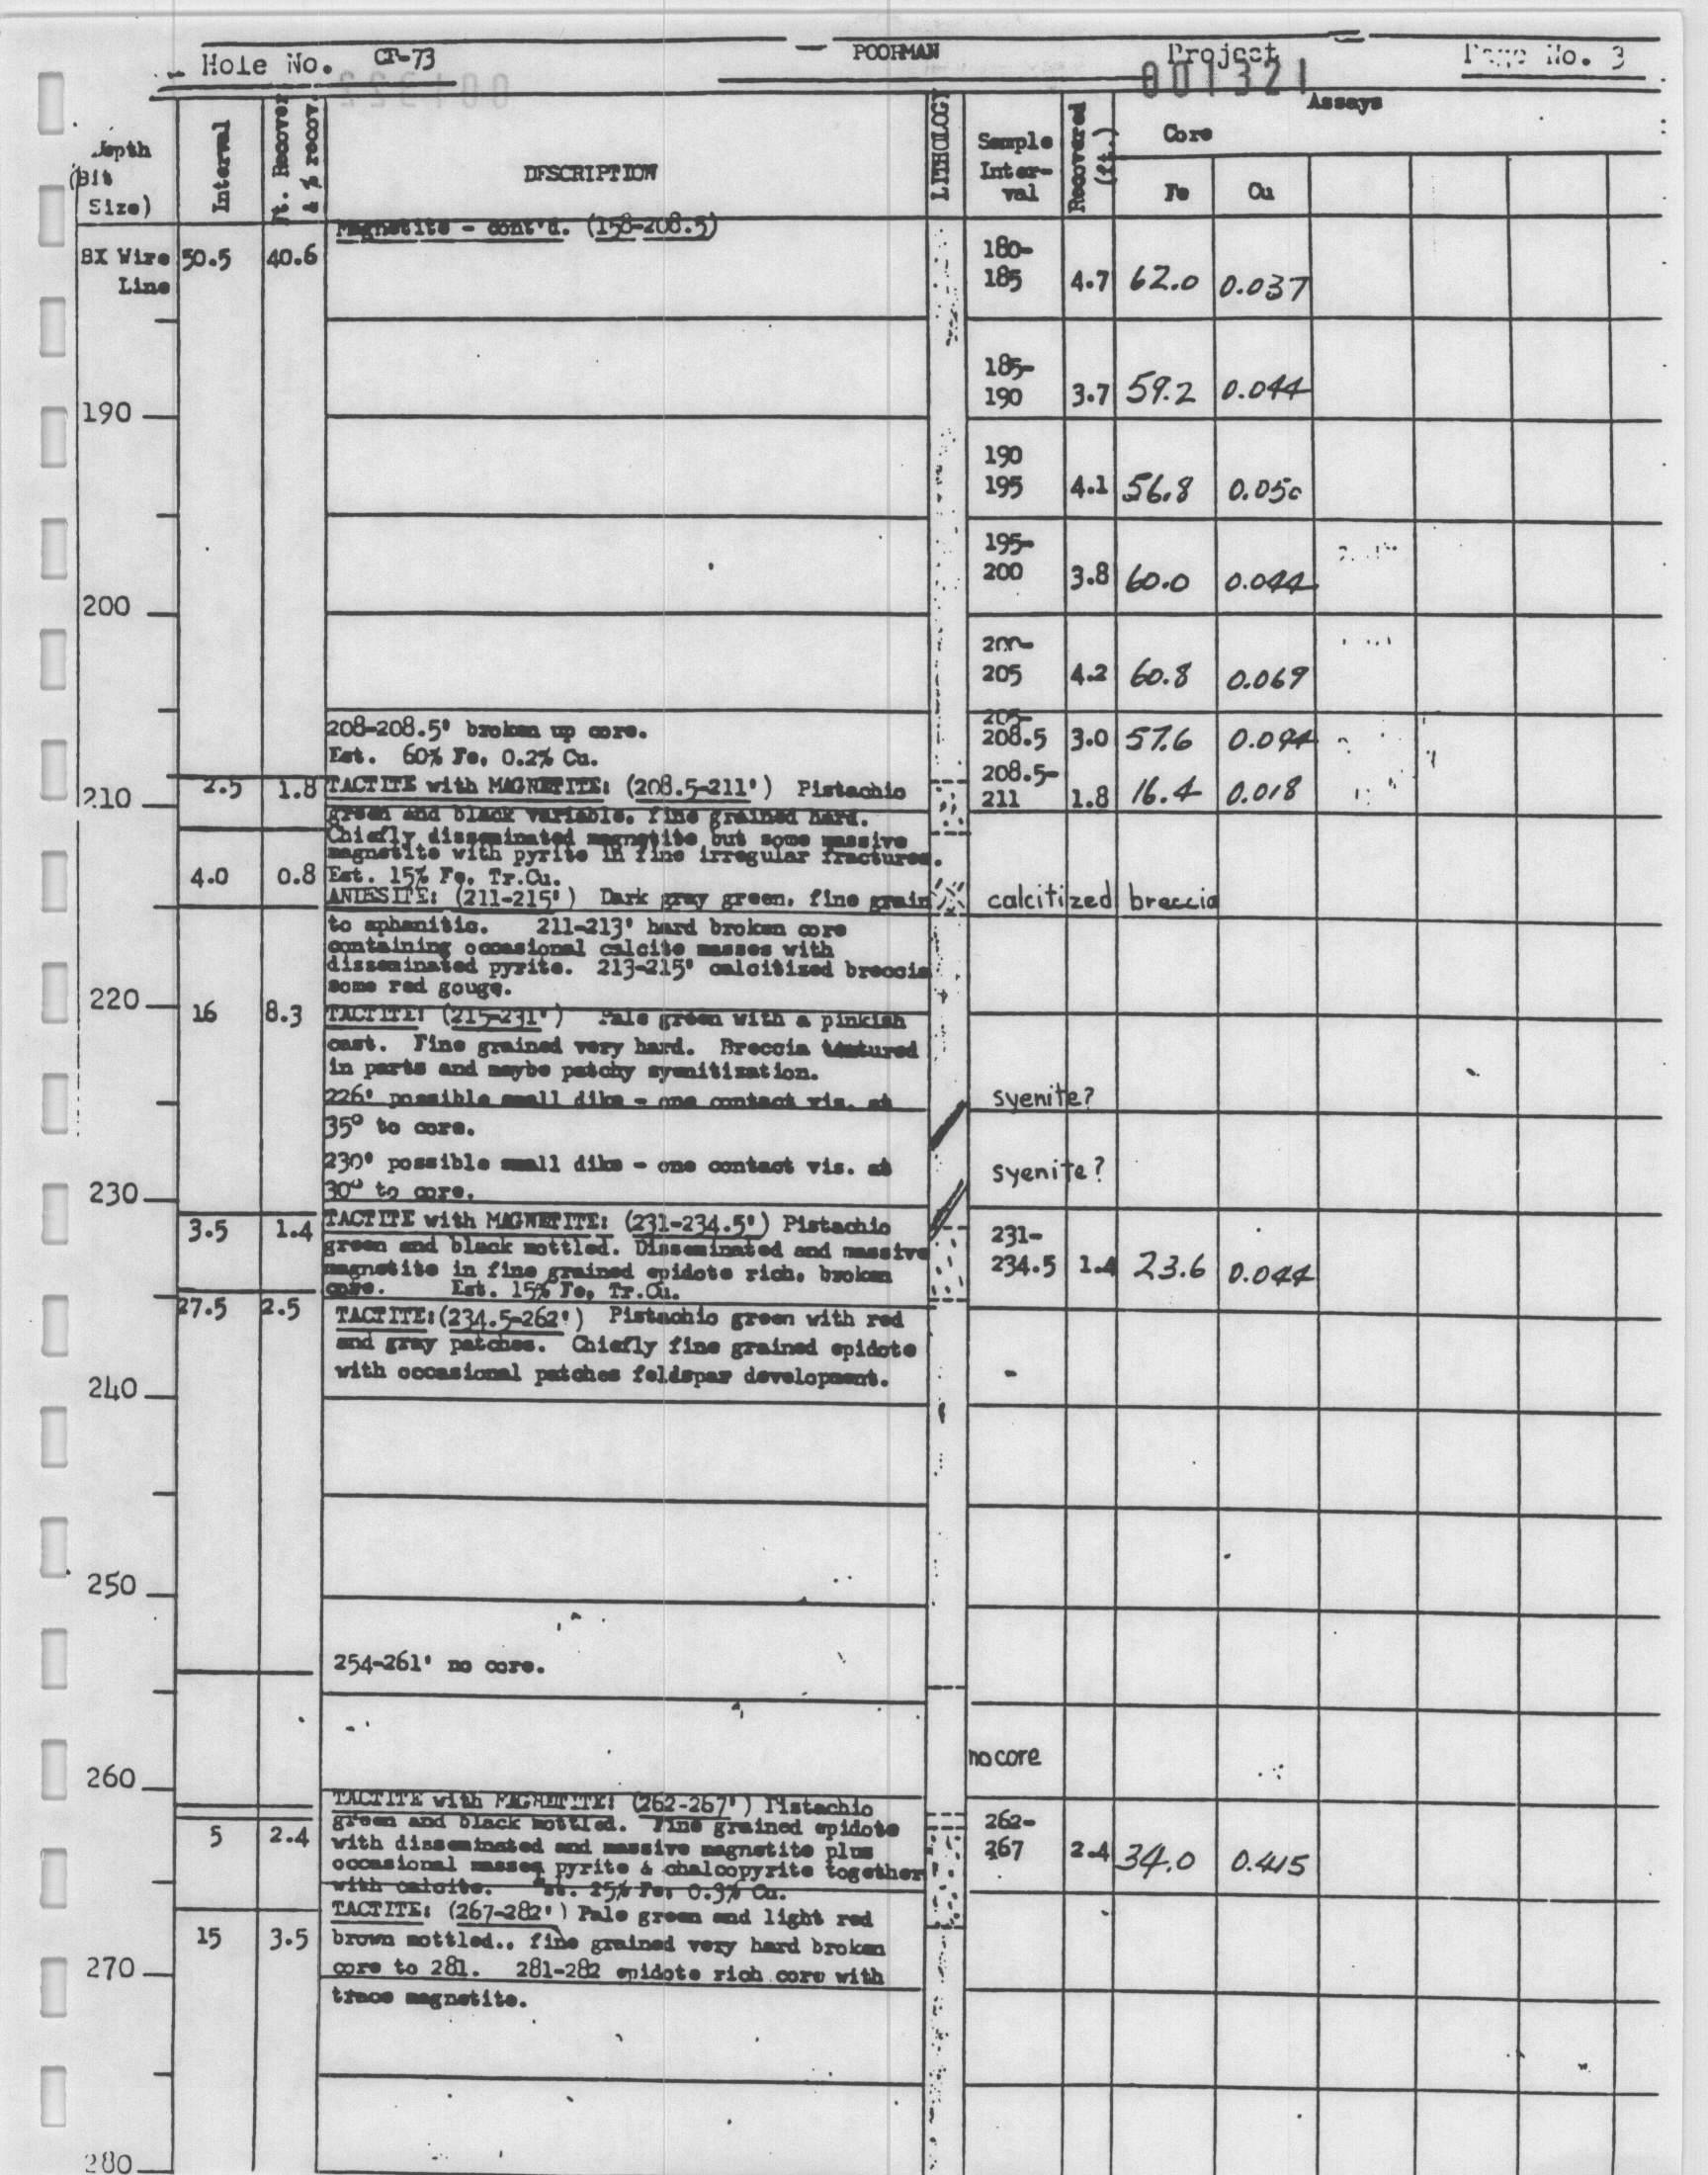 Hole No. CP-73 POORMAN Project Page No. 3
001321
Assays
Depth
(Bit
Size)
Interval
Ft. Recover
& % recov.
DESCRIPTION
LITHOLOGY
Sample
Inter-
val
Recovered
(ft.)
Core
Fe Cu
Magnetite - cont'd. (158-208.5)
BX Wire 50.5 40.6
Line
180-
185 4.7 62.0 0.037
185-
190 3.7 59.2 0.044
190
190
195 4.1 56.8 0.050
195-
200 3.8 60.0 0.044
200
200-
205 4.2 60.8 0.069
208-208.5' broken up core.
Est. 60% Fe, 0.2% Cu.
205-
208.5 3.0 57.6 0.094
2.5 1.8 TACTITE with MAGNETITE: (208.5-211') Pistachio
208.5-
211 1.8 16.4 0.018
210
green and black variable, fine grained hard.
Chiefly disseminated magnetite but some massive
magnetite with pyrite in fine irregular fractures.
4.0 0.8 Est. 15% Fe, Tr.Cu.
ANDESITE: (211-215') Dark gray green, fine grain
calcitized breccia
to aphanitic. 211-213' hard broken core
containing occasional calcite masses with
disseminated pyrite. 213-215' calcitized breccia
some red gouge.
220
16 8.3 TACTITE: (215-231') Pale green with a pinkish
cast. Fine grained very hard. Breccia textured
in parts and maybe patchy syenitization.
226' possible small dike - one contact vis. at
syenite?
35° to core.
230' possible small dike - one contact vis. at
syenite?
30° to core.
230
3.5 1.4 TACTITE with MAGNETITE: (231-234.5') Pistachio
green and black mottled. Disseminated and massive
magnetite in fine grained epidote rich, broken
core. Est. 15% Fe, Tr.Cu.
231-
234.5 1.4 23.6 0.044
27.5 2.5 TACTITE:(234.5-262') Pistachio green with red
and gray patches. Chiefly fine grained epidote
with occasional patches feldspar development.
240
250
254-261' no core.
no core
260
TACTITE with MAGNETITE: (262-267') Pistachio
green and black mottled. Fine grained epidote
5 2.4 with disseminated and massive magnetite plus
occasional masses pyrite & chalcopyrite together
with calcite. Est. 25% Fe, 0.3% Cu.
262-
267 2.4 34.0 0.415
TACTITE: (267-282') Pale green and light red
15 3.5 brown mottled.. fine grained very hard broken
core to 281. 281-282 epidote rich core with
trace magnetite.
270
280